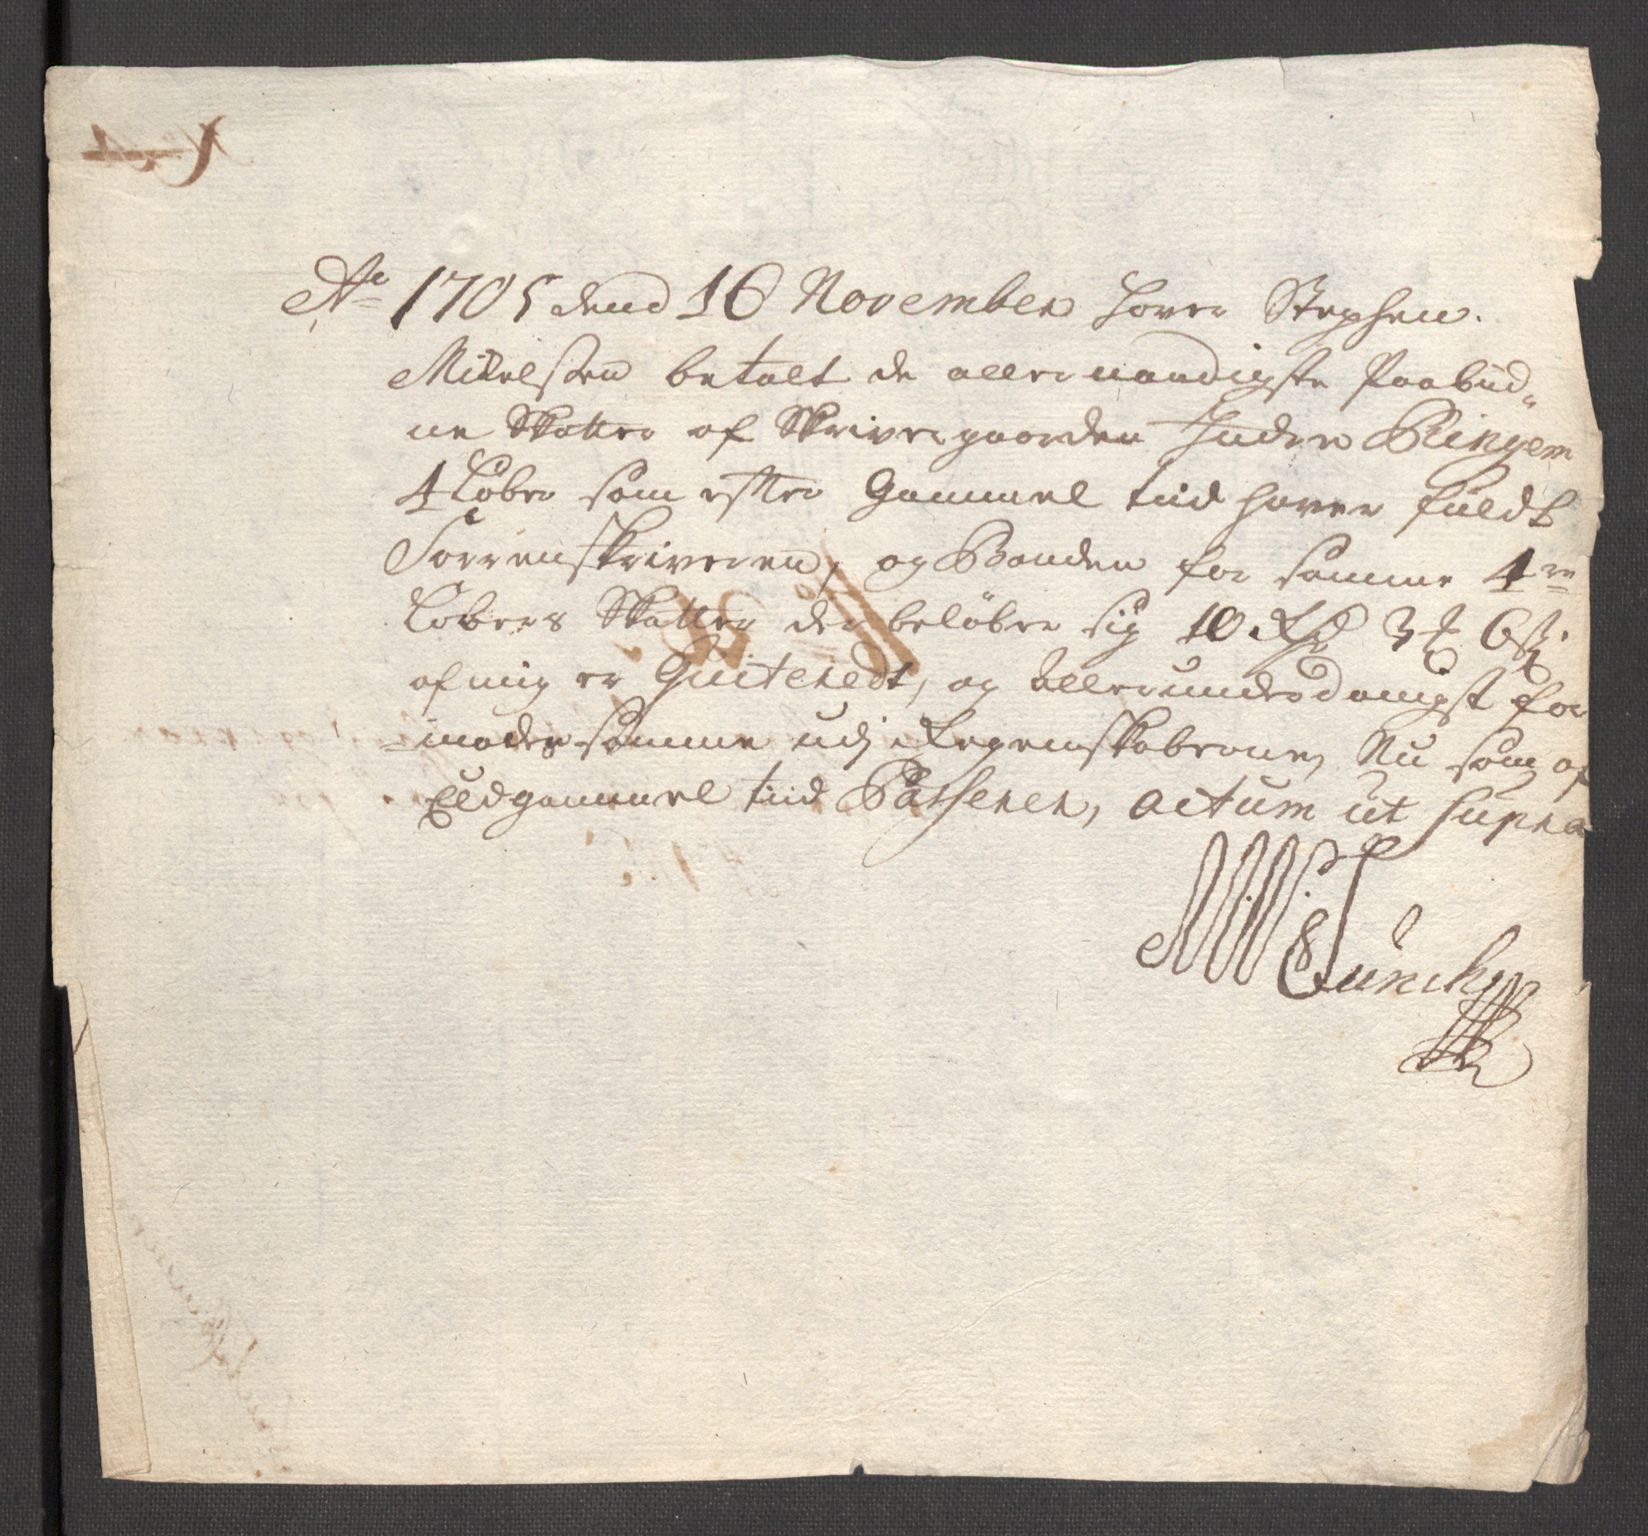 Ao 1705 dend 16 November hover Stephen
Mickelsen betalt de aller naadigste Paabud„
ne Skatter af Skrivergaarden Indre Ringem
4 Løber som effter Gammel tiid haver fuldt
Sorrenskriveren, og Bonden for samme 4re
Løbers Skatter der beløber sig 10 Rd 3 ₰ 6 ß.
af mig er Quiteredt, og allerunderdanigst for
moder samme udj Regenskaberne, Nu som af
Eldgammel tiid Passerer, actum ut supra
Münch